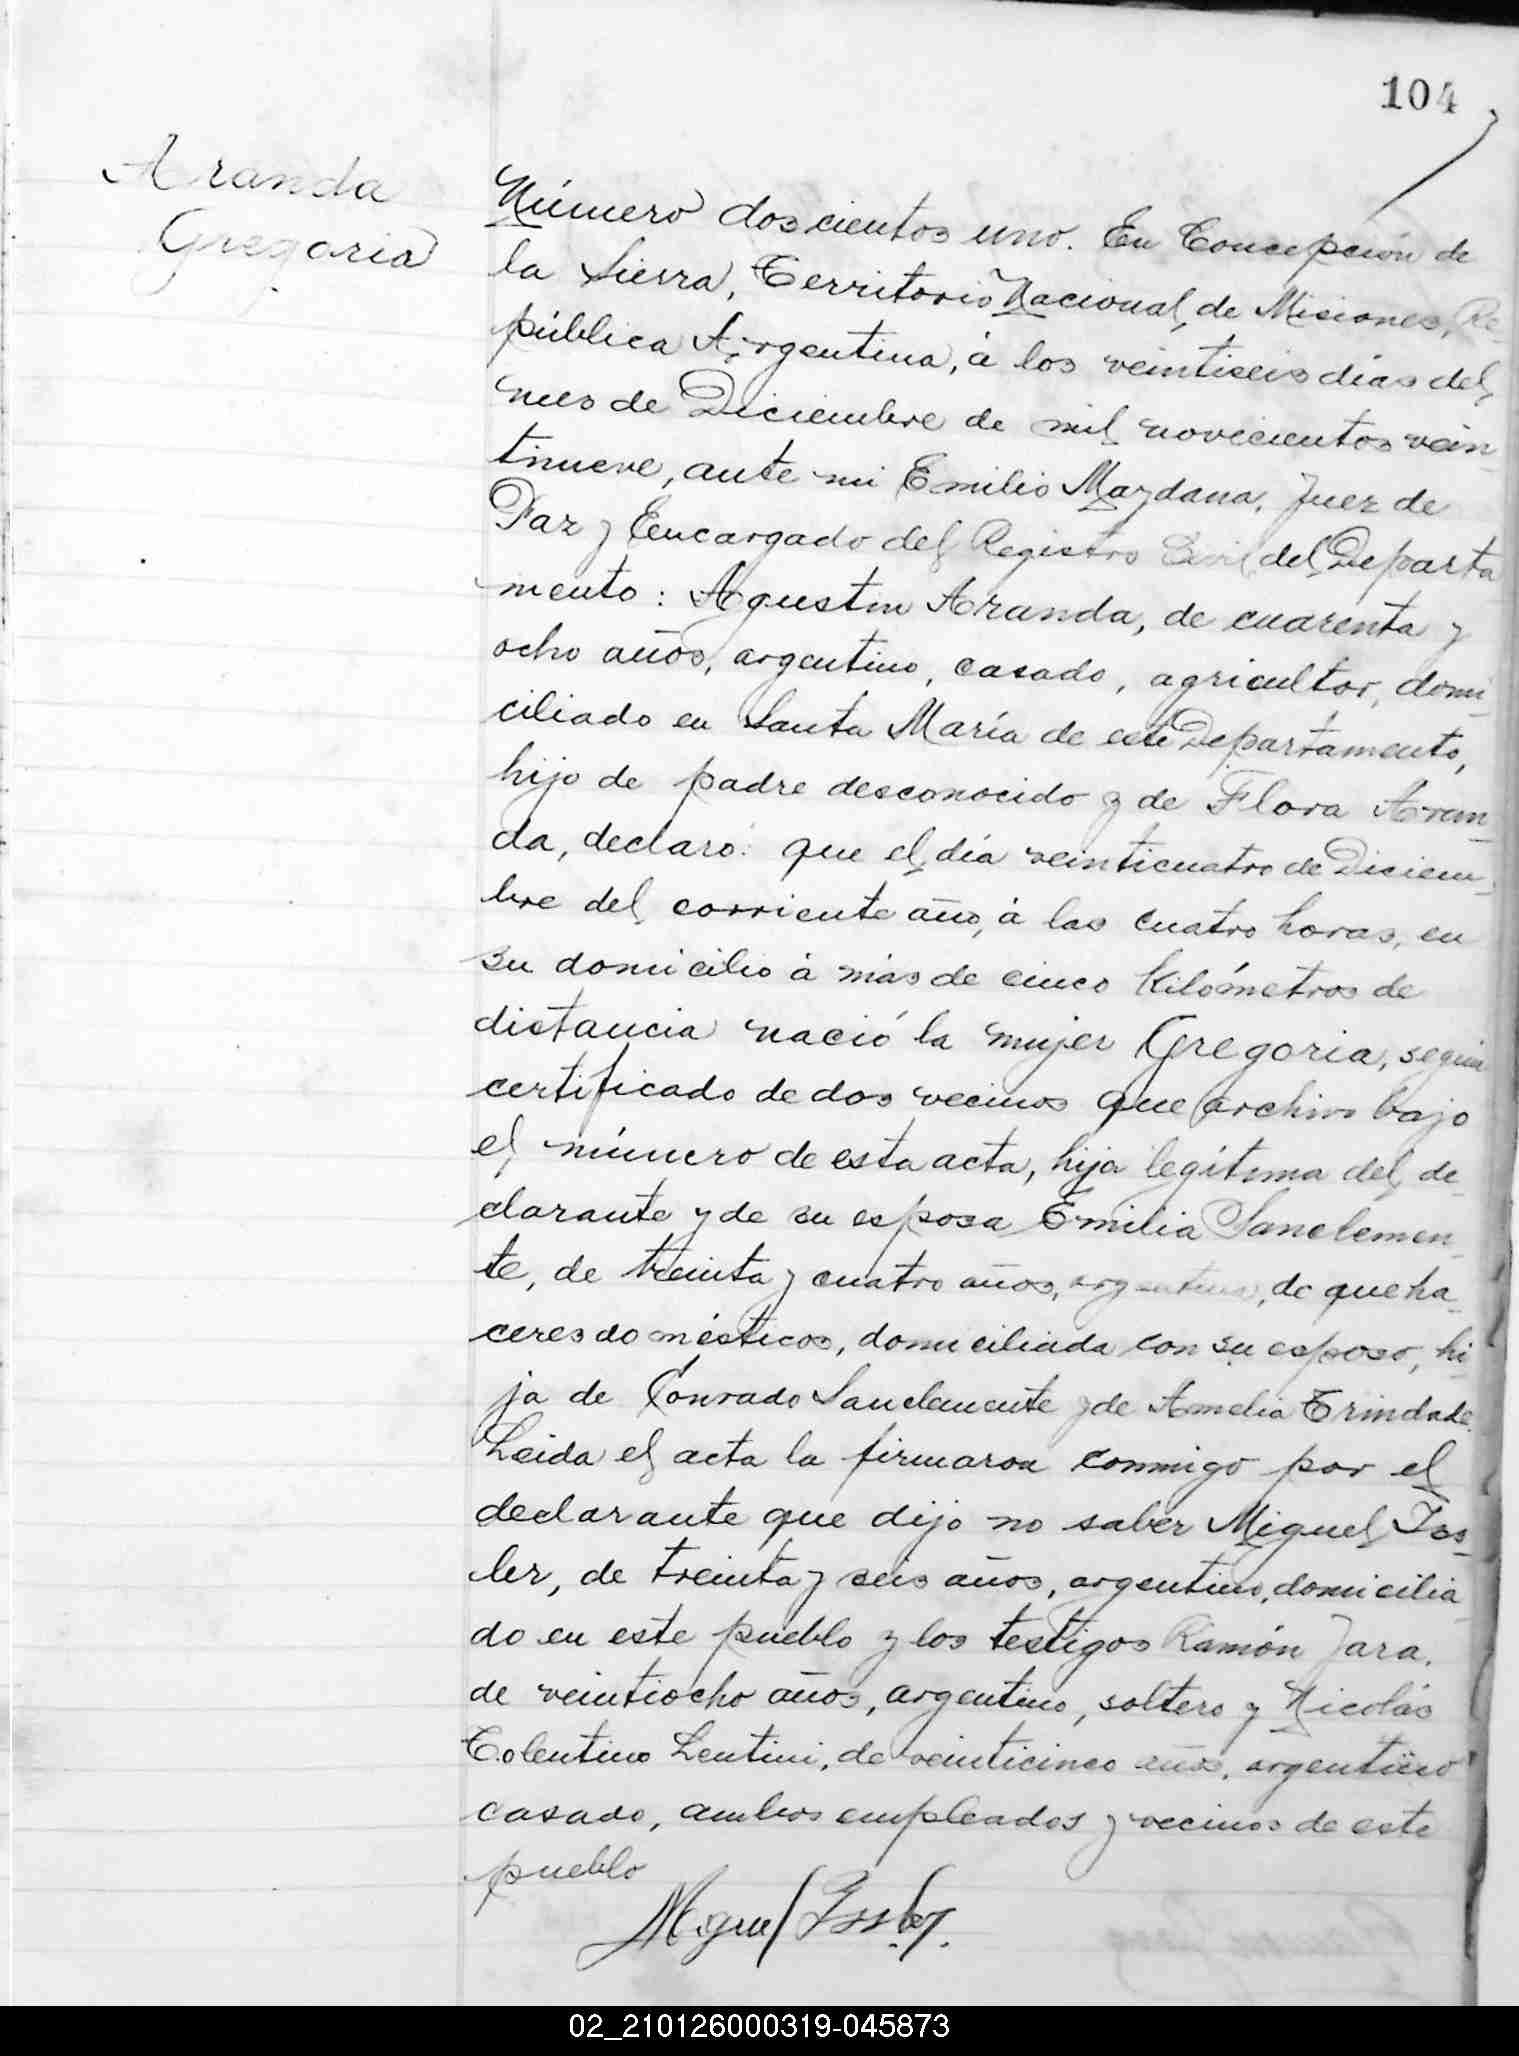 104
Aranda
Gregoria
Número doscientos uno. En Concepción de
la Sierra, Territorio Nacional de Misiones, Re-
pública Argentina, á los veintiseis dias del
mes de Diciembre de mil novecientos vein-
tinueve, ante mi Emilio Maydana, Juez de
Paz y Encargado del Registro Civil del Departa
mento: Agustin Aranda, de cuarenta y
ocho años, argentino, casado, agricultor, domi-
ciliado en Santa María de este Departamento,
hijo de padre desconocido y de Flora Aran-
da, declaró: que el dia veinticuatro de Diciem-
bre del corriente año, á las cuatro horas, en
su domicilio á más de cinco kilómetros de
distancia nació la mujer Gregoria, según
certificado de dos vecinos que archivo bajo
el número de esta acta, hija legítima del de-
clarante y de su esposa Emilia Sanclemen-
te, de treinta y cuatro años, argentina, de queha-
ceres domésticos, domiciliada con su esposo, hi-
ja de Conrado Sanclemente y de Amelia Trindade.
Leida el acta la firmaron conmigo por el
declarante que dijo no saber Miguel Iss-
ler, de treinta y seis años, argentino, domicilia-
do en este pueblo y los testigos Ramón Jara,
de veintiocho años, argentino, soltero y Nicolás
Tolentino Lentini, de veinticinco años, argentino
casado, ambos empleados y vecinos de este
pueblo
Miguel Issler.
02_210126000319-045873